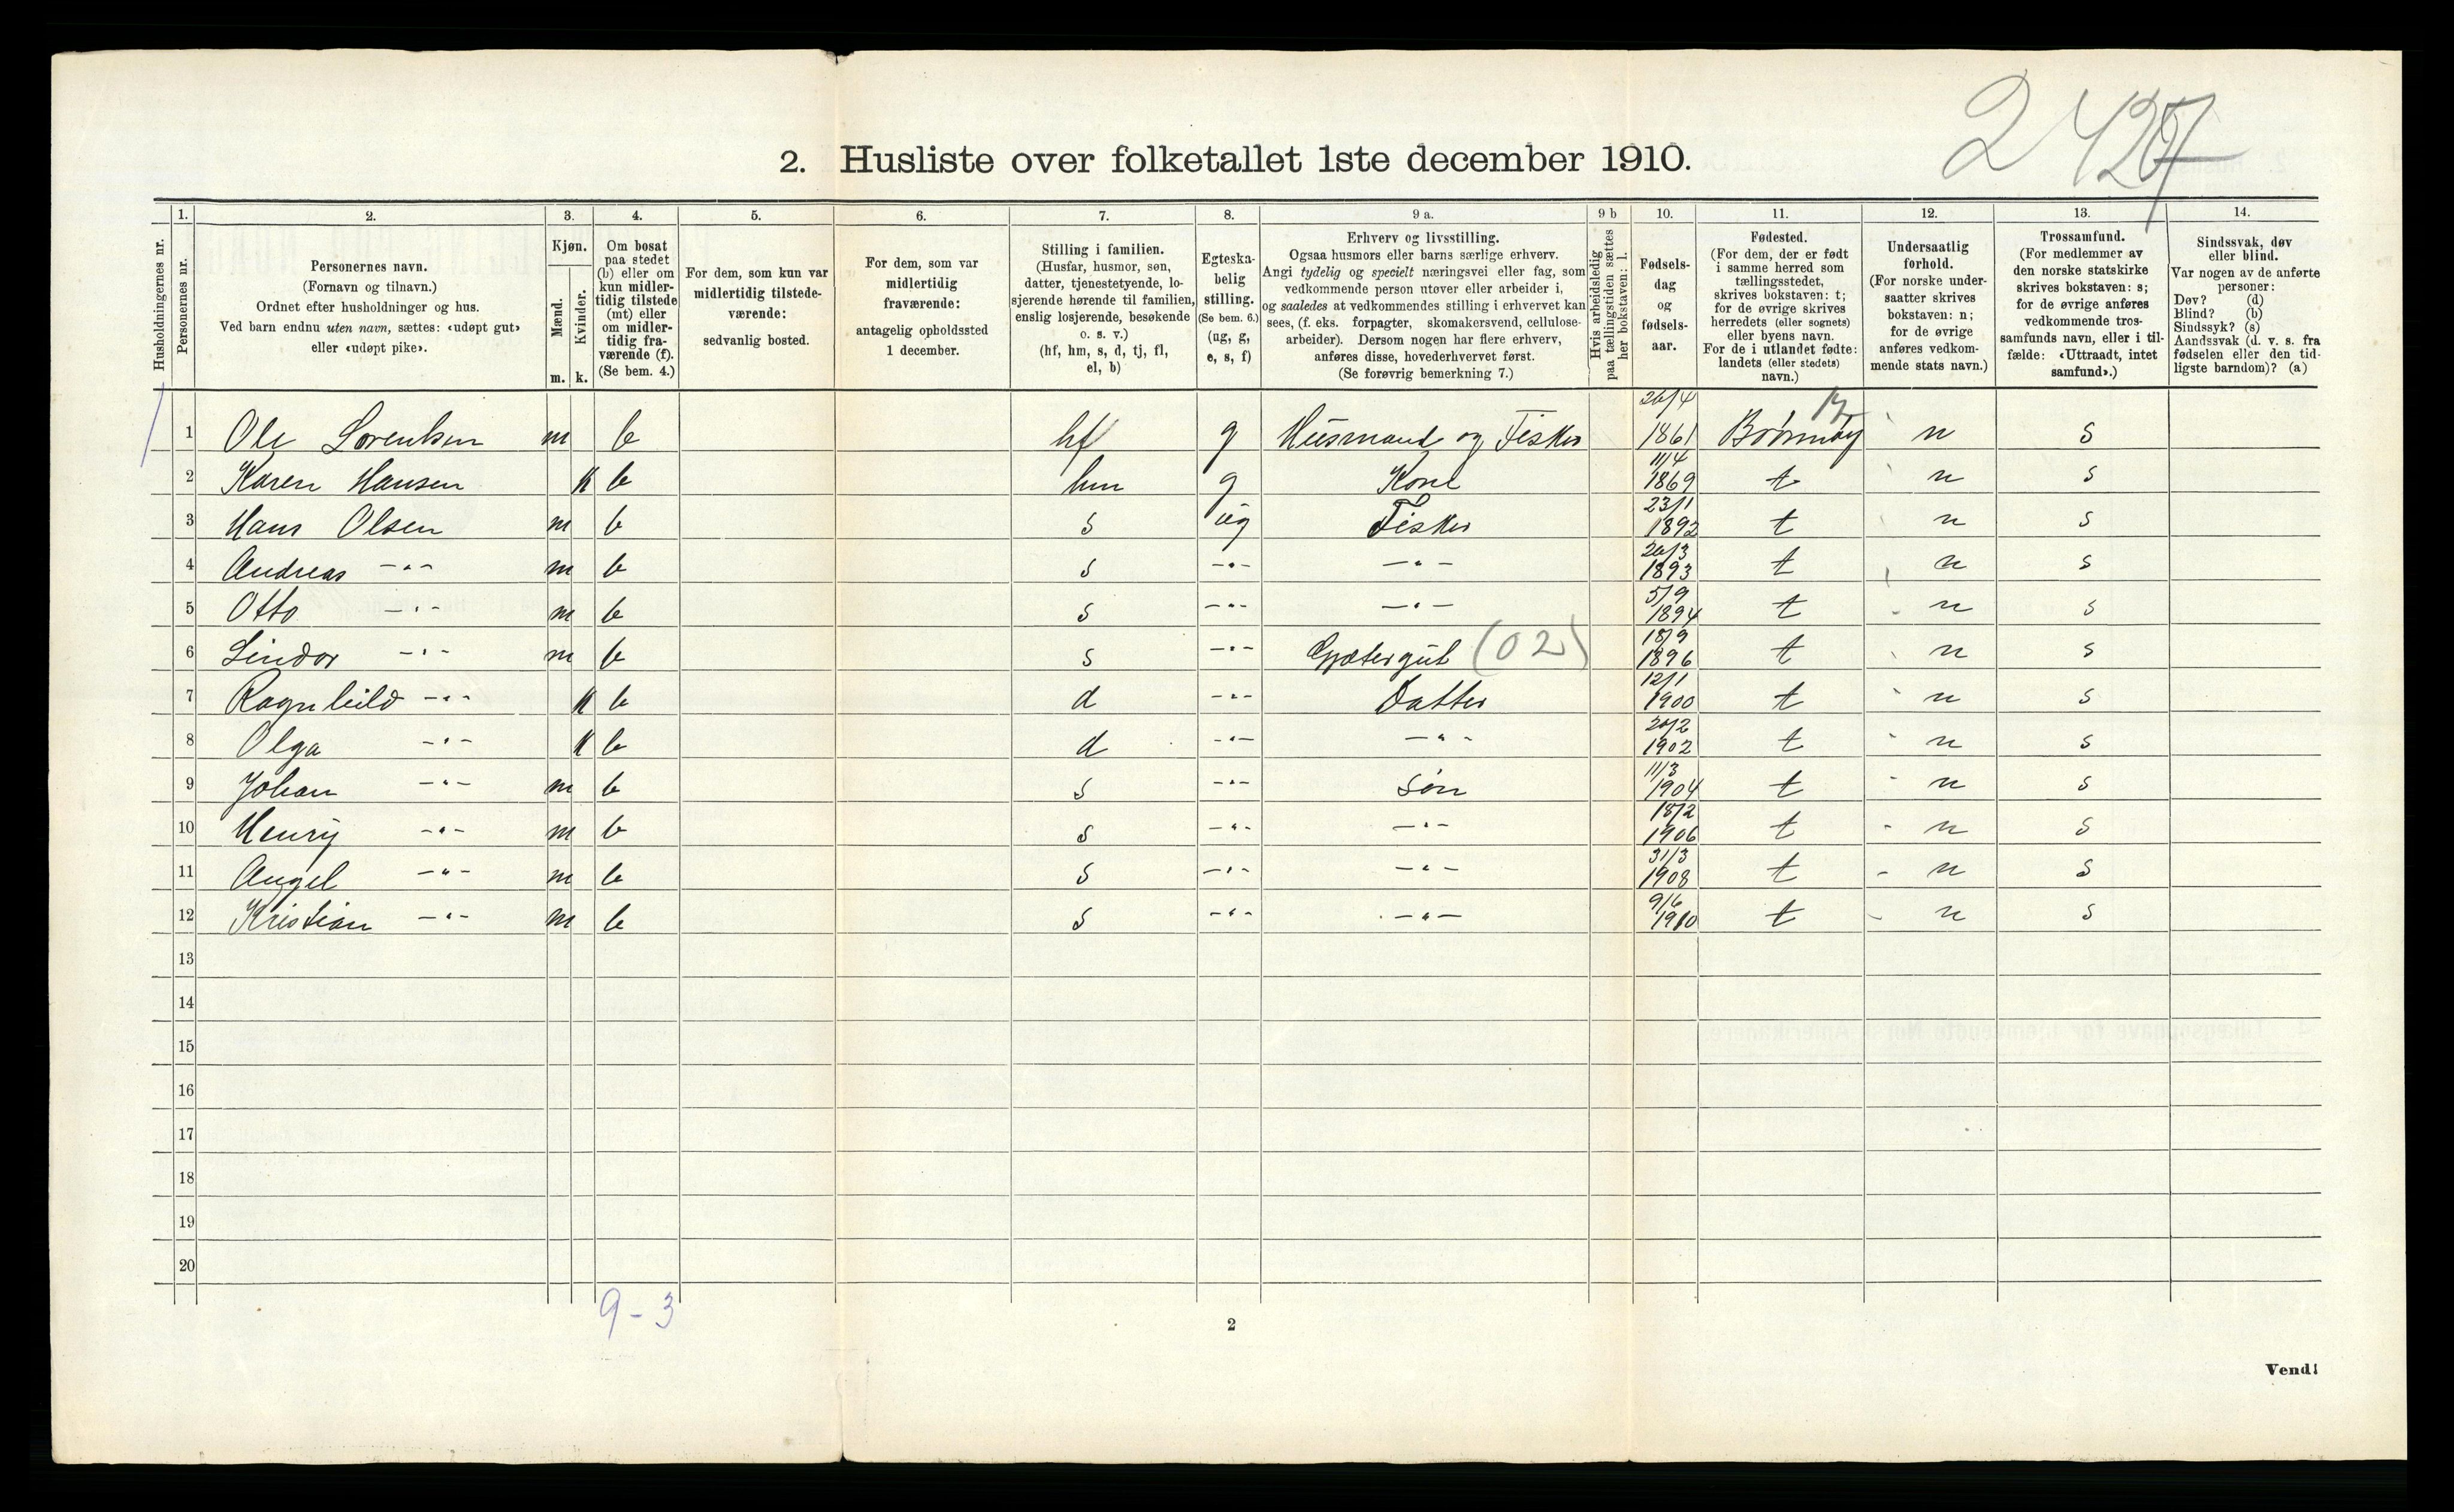 2427
2. Husliste over folketallet 1ste december 1910.
Husholdningernes nr.
1. Personernes nr.
2. Personernes navn.
(Fornavn og tilnavn.)
Ordnet efter husholdninger og hus.
Ved barn endnu uten navn, sættes: «udøpt gut»
eller «udøpt pike».
3. Kjøn.
Mænd. m.
Kvinder. k.
4. Om bosat
paa stedet
(b) eller om
kun midler-
tidig tilstede
(mt) eller
om midler-
tidig fra-
værende (f).
(Se bem. 4.)
5. For dem, som kun var
midlertidig tilstede-
værende:
sedvanlig bosted.
6. For dem, som var
midlertidig
fraværende:
antagelig opholdssted
1 december.
7. Stilling i familien.
(Husfar, husmor, søn,
datter, tjenestetyende, lo-
sjerende hørende til familien,
enslig losjerende, besøkende
o. s. v.)
(hf, hm, s, d, tj, fl,
el, b)
8. Egteska-
belig
stilling.
(Se bem. 6.)
(ug, g,
e, s, f)
9 a. Erhverv og livsstilling.
Ogsaa husmors eller barns særlige erhverv.
Angi tydelig og specielt næringsvei eller fag, som
vedkommende person utøver eller arbeider i,
og saaledes at vedkommendes stilling i erhvervet kan
sees, (f. eks. forpagter, skomakersvend, cellulose-
arbeider). Dersom nogen har flere erhverv,
anføres disse, hovederhvervet først.
(Se forøvrig bemerkning 7.)
9 b Hvis arbeidsledig
paa tællingstiden sættes
her bokstaven: l.
10. Fødsels-
dag
og
fødsels-
aar.
11. Fødested.
(For dem, der er født
i samme herred som
tællingsstedet,
skrives bokstaven: t;
for de øvrige skrives
herredets (eller sognets)
eller byens navn.
For de i utlandet fødte:
landets (eller stedets)
navn.)
12. Undersaatlig
forhold.
(For norske under-
saatter skrives
bokstaven: n;
for de øvrige
anføres vedkom-
mende stats navn.)
13. Trossamfund.
(For medlemmer av
den norske statskirke
skrives bokstaven: s;
for de øvrige anføres
vedkommende tros-
samfunds navn, eller i til-
fælde: «Uttraadt, intet
samfund».)
14. Sindssvak, døv
eller blind.
Var nogen av de anførte
personer:
Døv? (d)
Blind? (b)
Sindssyk? (s)
Aandssvak (d. v. s. fra
fødselen eller den tid-
ligste barndom)? (a)
1 Ole Lorentsen m b hf g Husmand og Fisker 26/4 1861 Brønnøy n s
2 Karen Hansen k b hm g Kone 11/4 1869 t n s
3 Hans Olsen m b s ug Fisker 23/1 1892 t n s
4 Andreas -"- m b s -"- -"- 26/3 1893 t n s
5 Otto -"- m b s -"- -"- 5/9 1894 t n s
6 Lindor -"- m b s -"- Gjætergut (02) 18/9 1896 t n s
7 Ragnhild -"- k b d -"- Datter 12/1 1900 t n s
8 Olga -"- k b d -"- -"- 20/2 1902 t n s
9 Johan -"- m b s -"- Søn 11/3 1904 t n s
10 Henry -"- m b s -"- -"- 18/2 1906 t n s
11 Angel -"- m b s -"- -"- 31/3 1908 t n s
12 Kristian -"- m b s -"- -"- 9/6 1910 t n s
13
14
15
16
17
18
19
20
9-3
2
Vend!